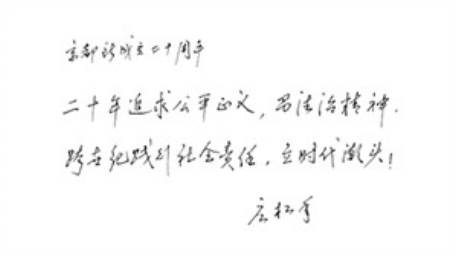 京都所成立二十周年
二十年追求公平正义，昌法治精神.
跨世纪践行社会责任，立时代潮头！
应松年